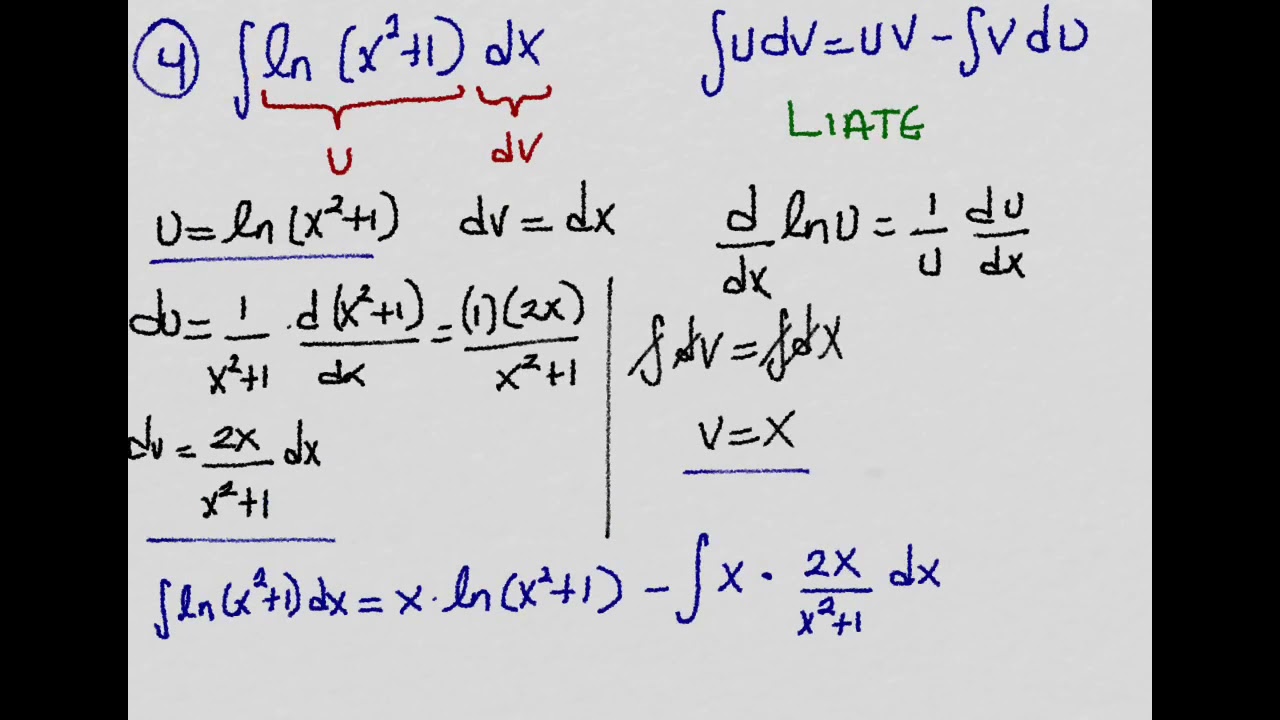 ④ ∫ ln (x²+1) dx
U dV
∫UdV = UV - ∫VdU
LIATE
U = ln(x²+1) dV = dx
d/dx lnU = 1/U dU/dx
dU = 1/(x²+1) · d(x²+1)/dx = (1)(2x)/(x²+1)
∫dV = ∫dx
dU = 2x/(x²+1) dx
V = x
∫ln(x²+1)dx = x · ln(x²+1) - ∫x · 2x/(x²+1) dx